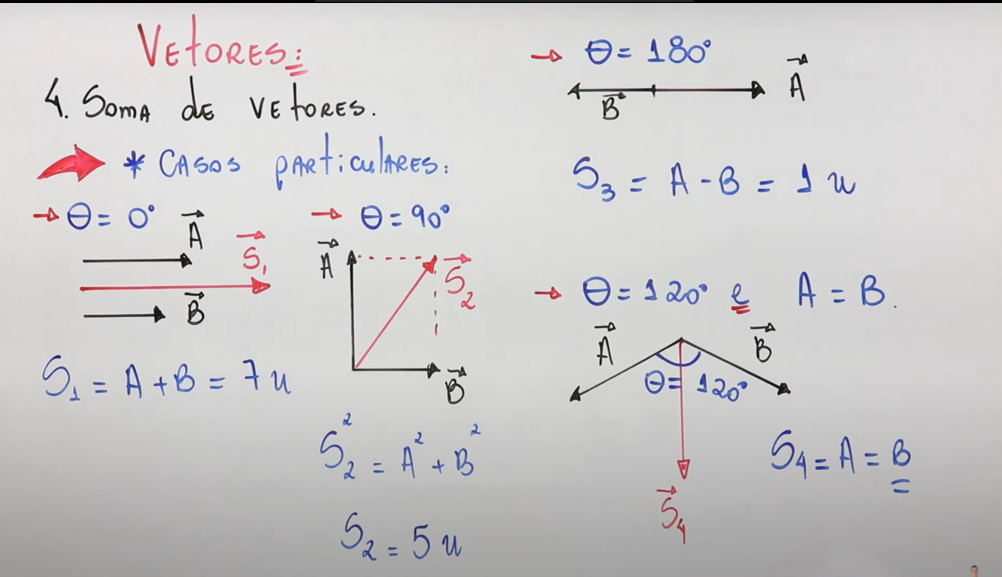 VETORES:
4. SOMA de VETORES.
* CASOS PARTICULARES:
→ θ = 0°
A⃗
S⃗₁
B⃗
S₁ = A + B = 7 u
→ θ = 90°
A⃗
S⃗₂
B⃗
S₂² = A² + B²
S₂ = 5 u
→ θ = 180°
B⃗ A⃗
S₃ = A - B = 1 u
→ θ = 120° e A = B.
A⃗ B⃗
θ = 120°
S⃗₄
S₄ = A = B